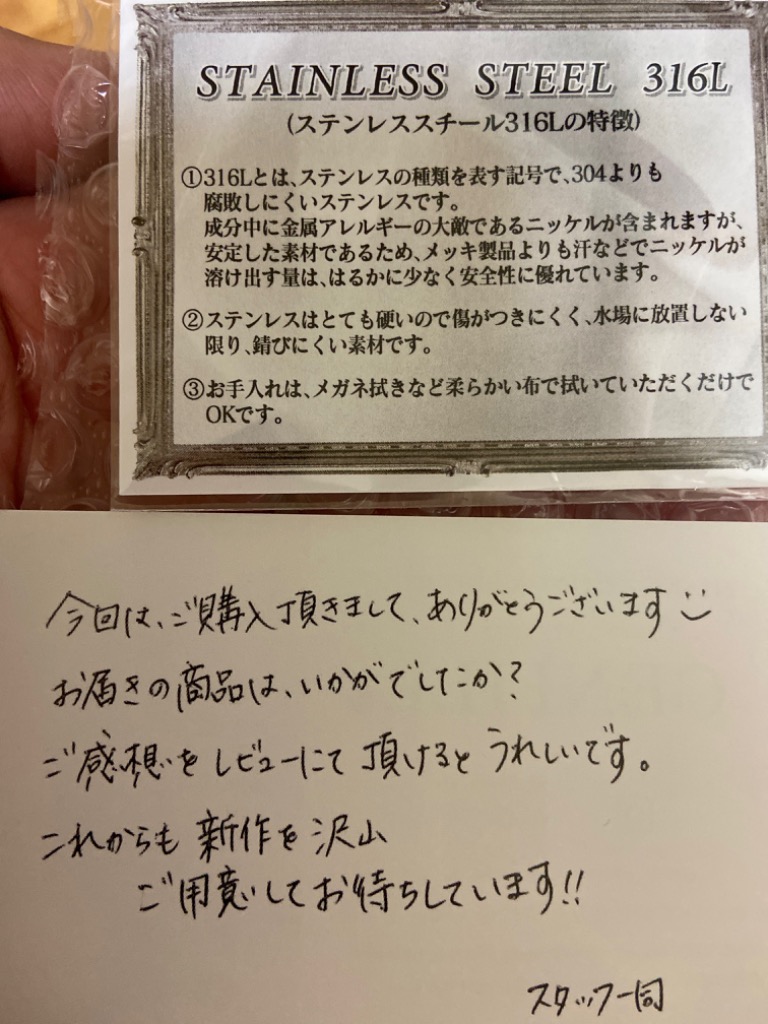 STAINLESS STEEL 316L
(ステンレススチール316Lの特徴)
①316Lとは、ステンレスの種類を表す記号で、304よりも
腐敗しにくいステンレスです。
成分中に金属アレルギーの大敵であるニッケルが含まれますが、
安定した素材であるため、メッキ製品よりも汗などでニッケルが
溶け出す量は、はるかに少なく安全性に優れています。
②ステンレスはとても硬いので傷がつきにくく、水場に放置しない
限り、錆びにくい素材です。
③お手入れは、メガネ拭きなど柔らかい布で拭いていただくだけで
OKです。
今回は、ご購入頂きまして、ありがとうございます
お届きの商品は、いかがでしたか?
ご感想をレビューにて頂けるとうれしいです。
これからも新作を沢山
ご用意してお待ちしています!!
スタッフ一同